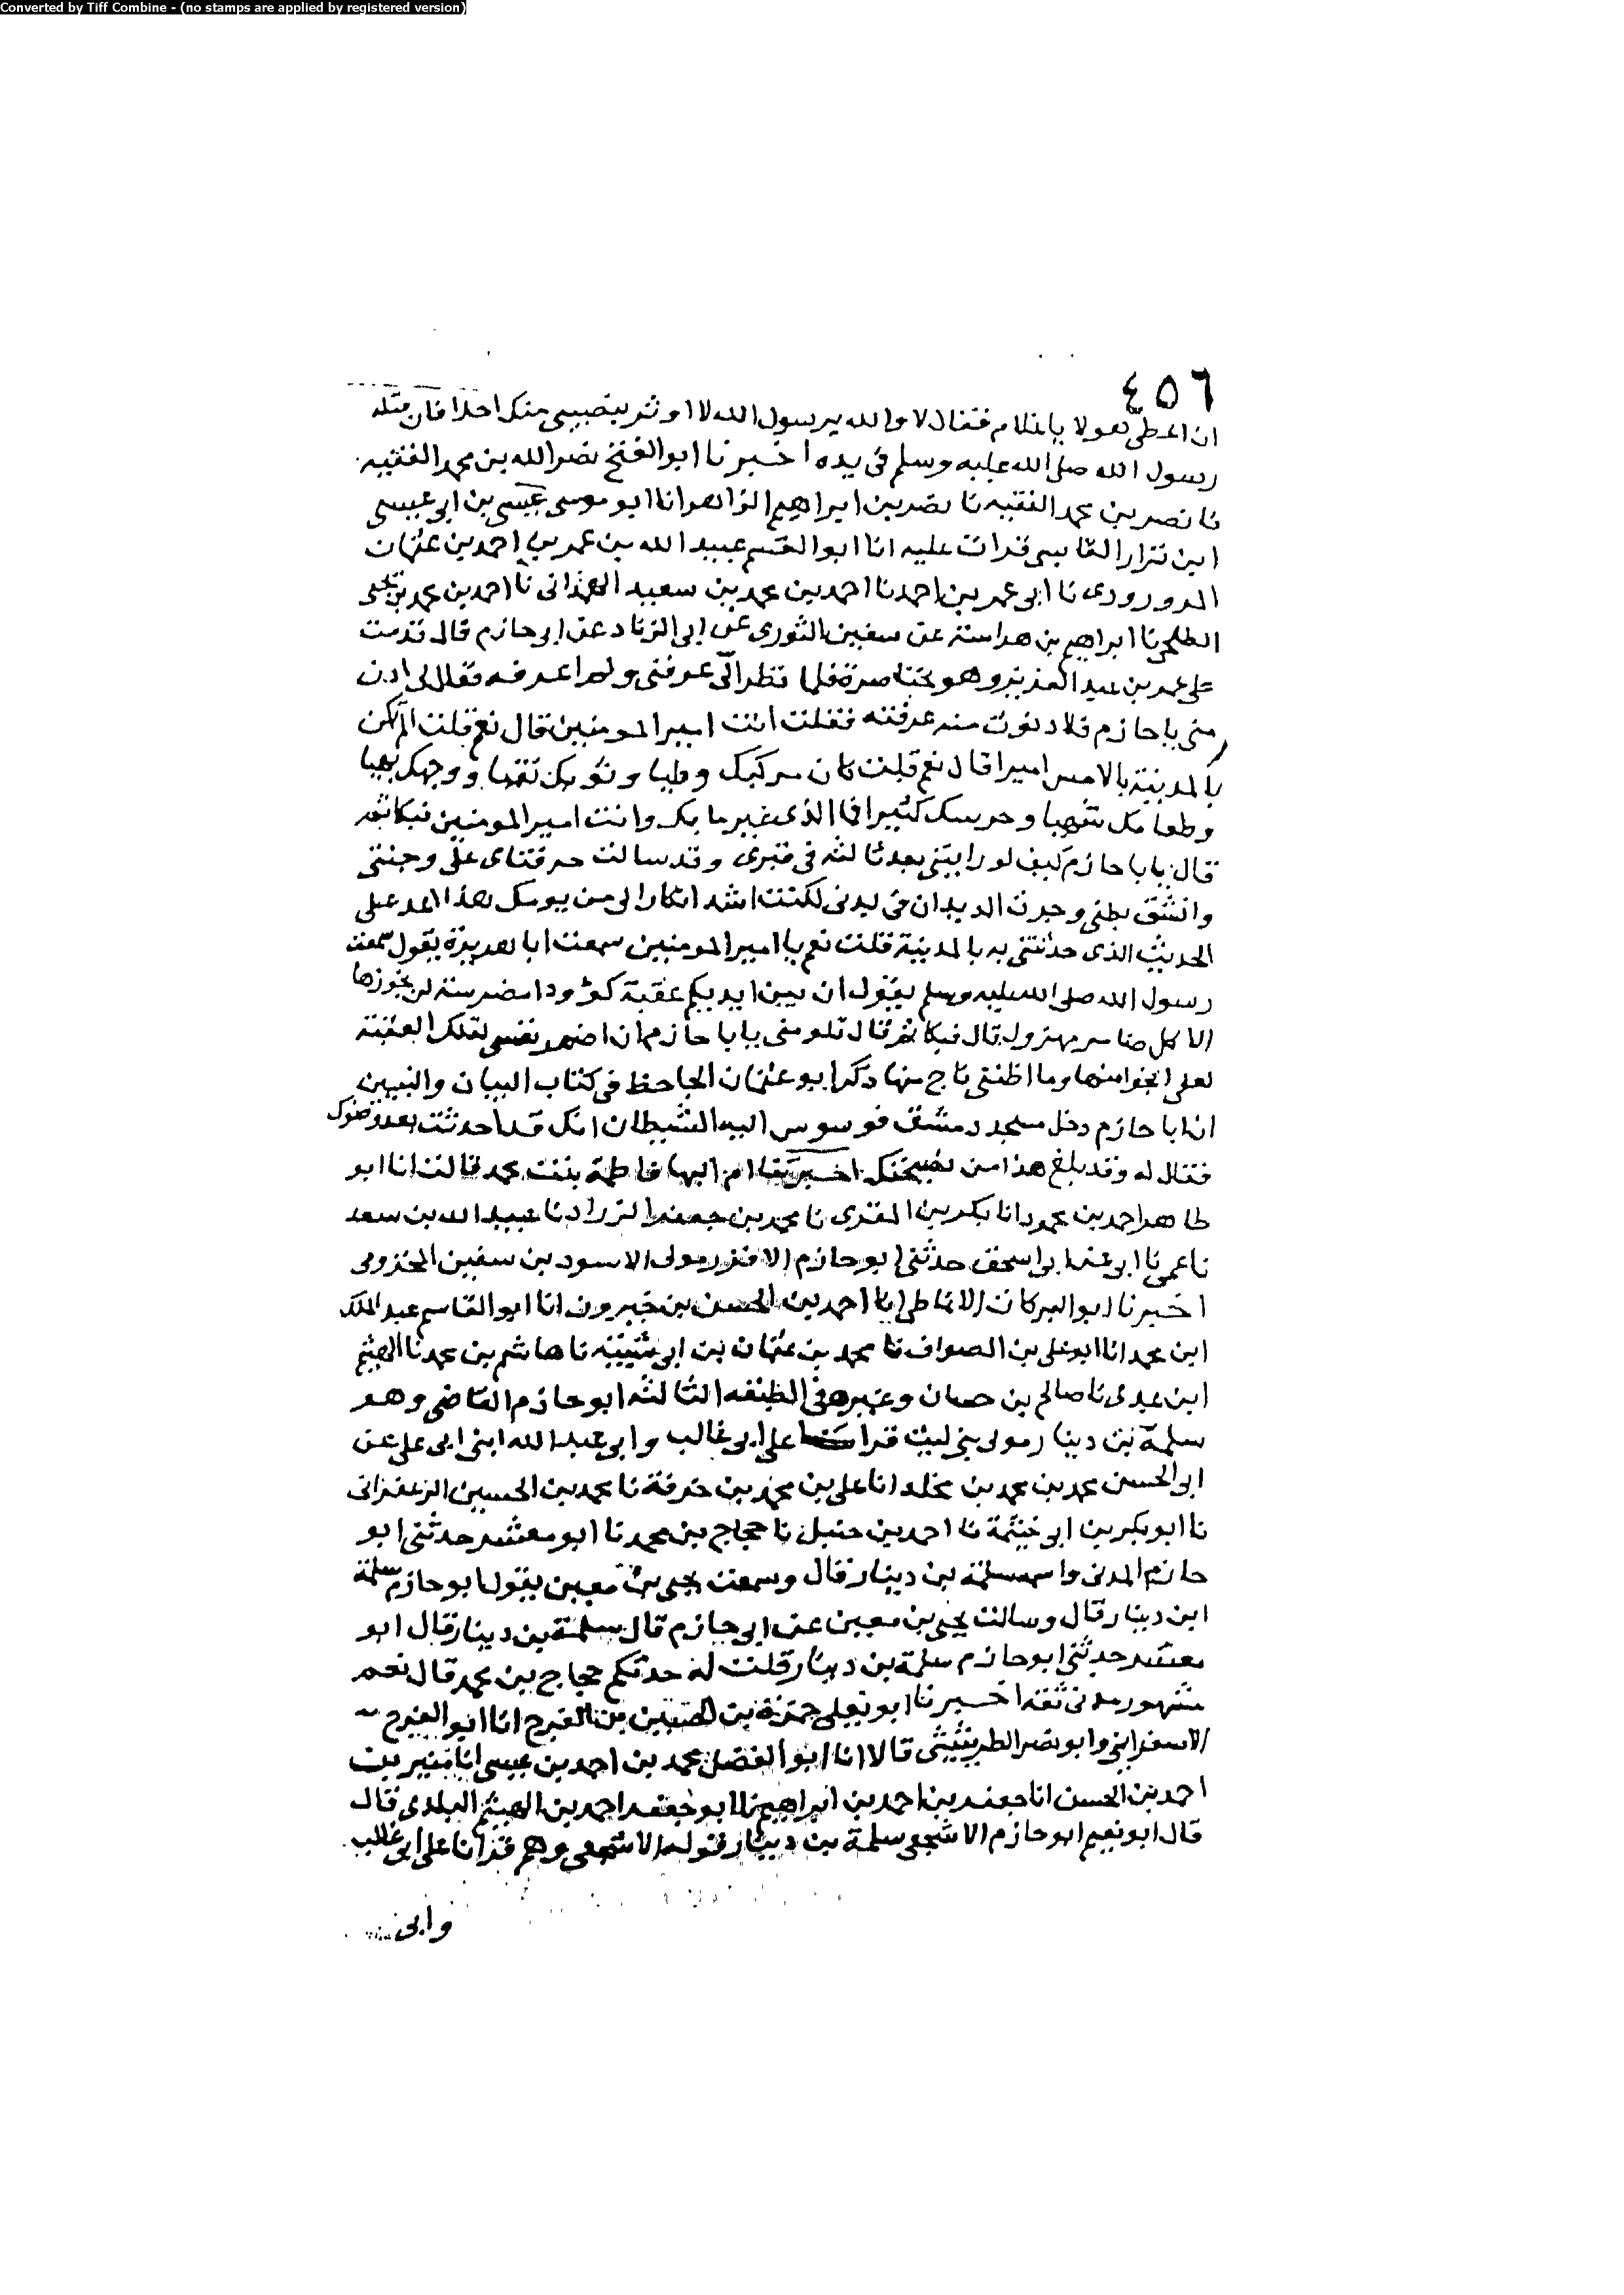 Converted by Tiff Combine - (no stamps are applied by registered version)
٤٥٦
ان اعطى هولا ياغلام فقال لا والله يرسول الله لا اوثر بنصيبى منك احدا فان فتله
رسول الله صلى الله عليه وسلم فى يده اخبرنا ابو الفتح نصر الله بن محمد الفقيه
نا نصر بن محمد الفقيه نا نصر بن ابراهيم الزاهد انا ابو موسى عيسى بن ابى عيسى
ابن نزار القابسى قرات عليه انا ابو القسم عبيد الله بن عمر بن احمد بن عثمان
المروروذى نا ابى عمر بن احمد نا احمد بن محمد بن سعيد الهمذانى نا احمد بن محمد بن يحيى
الطلحى نا ابراهيم بن هراسة عن سفين الثورى عن ابى الزناد عن ابو حازم قال قدمت
على عمر بن عبد العزيز وهو بخناصرة فلما نظر الى عرفنى ولم اعرفه فقال لى ادن
منى يا حازم فلا دنوت منه عرفته فقلت انت امير المومنين قال نعم قلت الم تكن
بالمدينة بالامس اميرا قال نعم قلت كان مركبك وطيا وثوبك نقيا ووجهك بهيا
وطعامك شهيا وحرسك كثيرا فما الذى غير ما بك وانت امير المومنين فبكا ثم
قال يابا حازم كيف لو رايتنى بعد ثالثه فى قبرى وقد سالت حدقتاى على وجنتى
وانشق بطنى وجرت الديدان فى بدنى لكنت اشد انكارا لى من يومك هذا اعد على
الحديث الذى حدثتنى به بالمدينة قلت نعم يا امير المومنين سمعت ابا هريرة يقول سمعت
رسول الله صلى الله عليه وسلم يقول ان بين ايديكم عقبة كؤودا مضرسة لن يجوزها
الا كل ضامر مهزول قال فبكا ثم قال تلومنى يابا حازم ان اضمر نفسى لتلك العقبة
لعلى انجو امنها وما اظننى ناج منها ذكر ابو عثمان الجاحظ فى كتاب البيان والتبيين
ان ابا حازم دخل مسجد دمشق فوسوس اليه الشيطان انك قد احدثت بعد وضوك
فقال له وقد بلغ هذا من نصيحتك اخبرتنا ام البها فاطمة بنت محمد قالت انا ابو
طاهر احمد بن محمود انا بكر بن المقرى نا محمد بن جعفر الزراد نا عبيد الله بن سعد
نا عمى نا ابى عن ابى اسحق حدثنى ابو حازم الافزر مولى الاسود بن سفين المخزومى
اخبرنا ابو البركات الانماطى انا احمد بن الحسن بن خيرون انا ابو القاسم عبد الملك
ابن محمد انا ابو على بن الصواف نا محمد بن عثمان بن ابى شيبة نا هاشم بن محمد نا الهيثم
ابن عدى نا صالح بن حسان وغيره فى الطبقه الثالثه ابو حازم القاضى وهو
سلمة بن دينار مولى بنى ليث قرا على ابى غالب وابى عبد الله ابنى ابى على عن
ابى الحسن محمد بن محمد بن مخلد انا على بن محمد بن خزفة نا محمد بن الحسين الزعفرانى
نا ابو بكر بن ابى خيثمة نا احمد بن حنبل نا حجاج بن محمد نا ابو معشر حدثنى ابو
حازم المدنى واسمه سلمة بن دينار قال وسمعت يحيى بن معين يقول ابو حازم سلمة
ابن دينار قال وسالت يحيى بن معين عن ابى حازم قال سلمة بن دينار قال ابو
معشر حدثنى ابو حازم سلمة بن دينار قلت له حدثكم حجاج بن محمد قال نعم
مشهور مدنى ثقه اخبرنا ابو يعلى حمزة بن الحسين بن المفرج انا ابو الفرج
الاسفراينى وابو نصر الطريثيثى قالا انا ابو الفضل محمد بن احمد بن عيسى انا منير بن
احمد بن الحسن انا جعفر بن احمد بن ابراهيم نا ابو جعفر احمد بن الهيثم البلدى قال
قال ابو نعيم ابو حازم الاشجعى سلمة بن دينار قوله الاشجعى وهم قرانا على ابى غالب
وابى